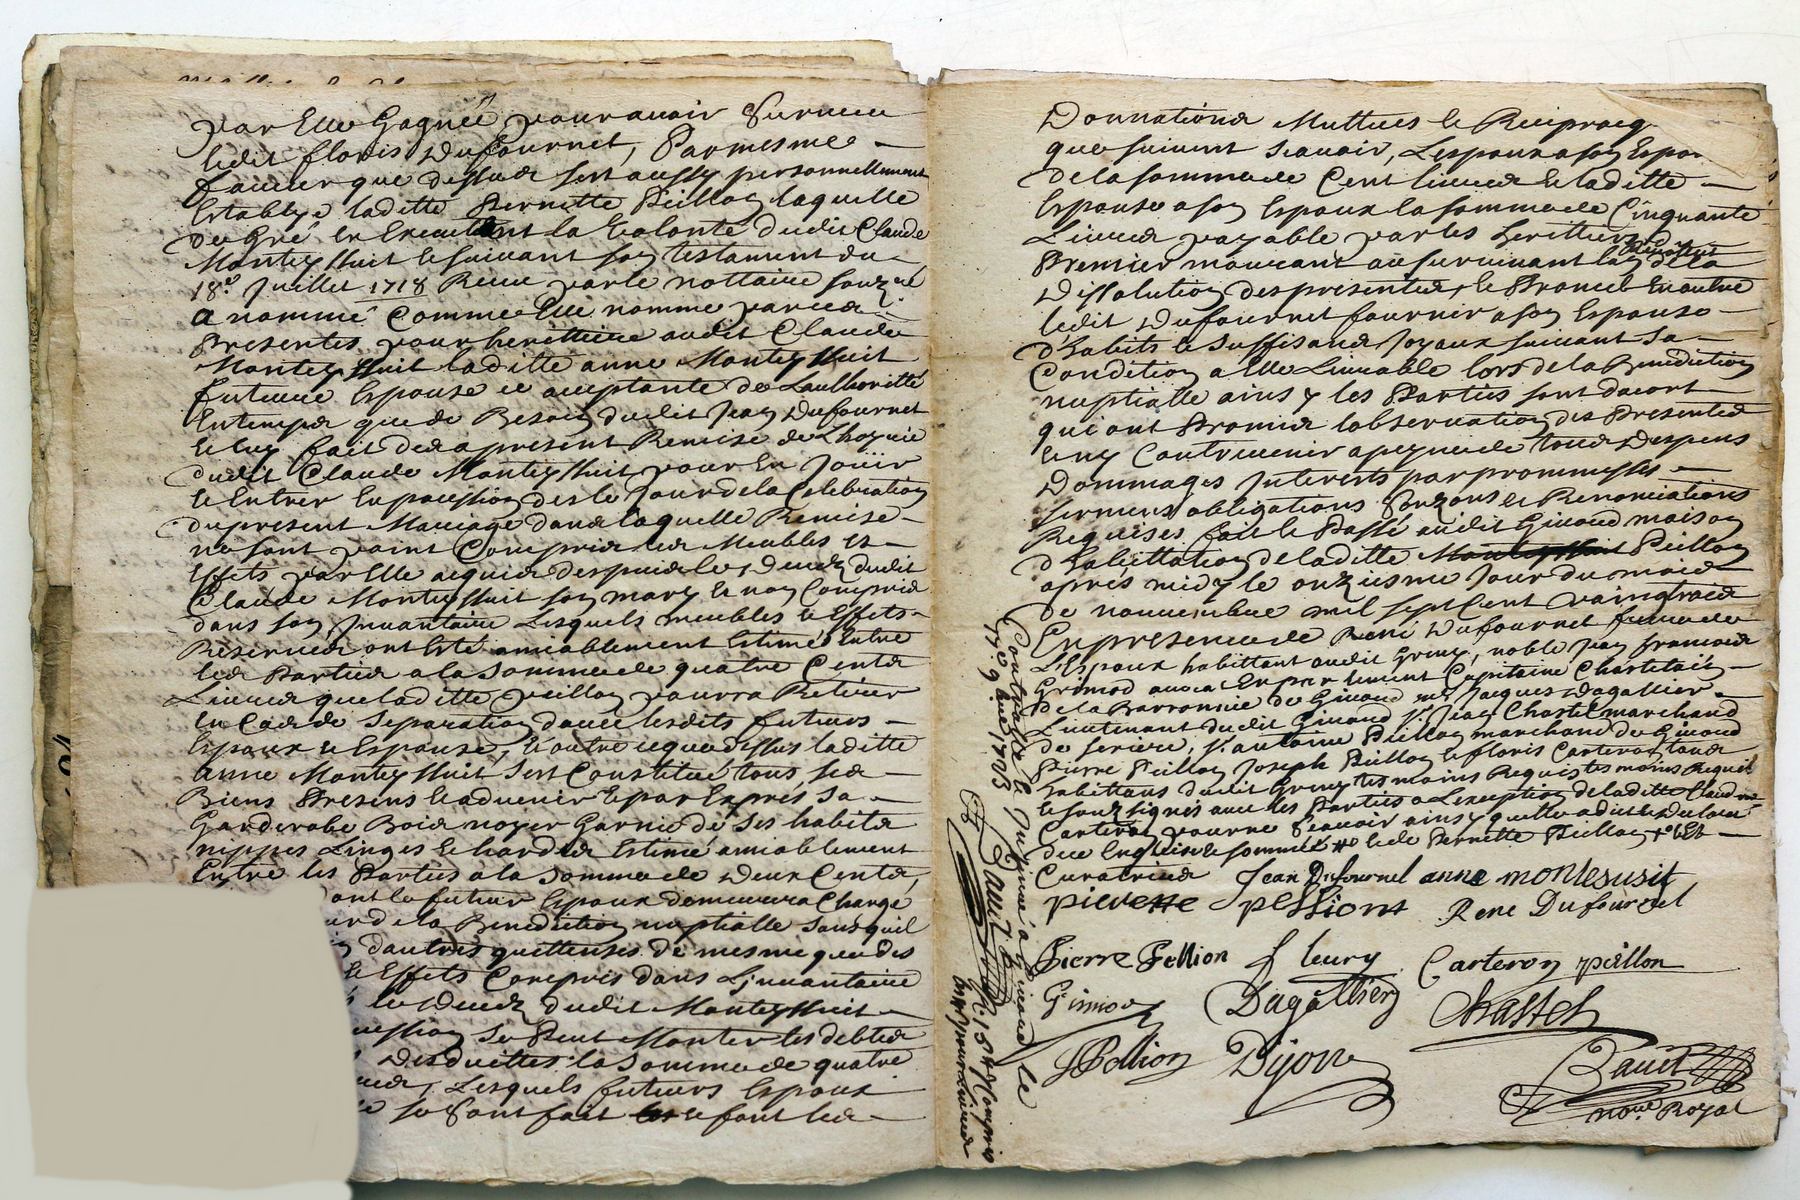 par Elle Gagnée pour avoir Survecu
ledit floris Dufournet, Parmesme
faueur que dessus sert aussy personnellement
Establye laditte Pernette Peillon laquelle
de Gré en Executant la Volonte dudit Claude
Monteysuit le suivant son testament du
18e Juillet 1718 Receu par le nottaire souz.né
a nommé comme Elle nomme par ces
Presentes pour heritiere audit Claude
Monteysuit laditte anne Monteysuit
future Espouse ce acceptante de Lauthorité
Entemps que de Besoin dudit Jean Dufournet
Et luy fait des a present Remise de Lhoyrie
dudit Claude Monteysuit pour En Jouïr
Et Entrer En pocession des le Jour de la Celebration
du present Mariage dans laquelle Remise
ne sont point Compris les Meubles et
Effets par Elle acquis despuis le Deceds dudit
Claude Monteysuit son mary Et non Compris
dans son Inuantaire Lesquels meubles Et Effets
Reserues ont Esté amiablement Estimés Entre
les Parties a la somme de quatre Cents
Liures que laditte peillon pourra Retirer
En Cas de Separation dauec lesdits futurs
Espoux Et Espouse, Et outre ce que dessus laditte
anne Monteysuit sest Constitué tous ses
Biens Presens Et aduenir Et par Exprés sa
Garderobe Bois noyer Garnie de ses habits
nippes Linges Et hardes Estimé amiablement
Entre les Parties a la somme de Deux Cents,
dont le futur Espoux demeurera Chargé
de la Benediction nuptialle sans quil
dautres quittances de mesme que des
Et Effets Compris dans Linuantaire
le Deceds dudit Monteysuit
se Peut Monter les debtes
Desduittes la somme de quatre
Lesquels futurs Espoux
se sont fait et se font les
Donnations Muttues Et Reciproq
que suiuent scauoir, Lespoux a son Espou
de la somme de Cent liures Et laditte
Espouse a son Espoux la somme de Cinquante
Liures payable par les heritiers du
Premier mourant au suruiuant lan de la
Dissolution des presentes, Et Promet En outre
ledit Dufournet fournir a son Espouse
d'habits Et suffisans Joyaux suiuant sa
Condition a Elle Liurable lors de la Benediction
nuptialle ainsy les Parties sont dacort
qui ont Promis lobseruation des Presentes
Et ny Contreuenir a peyne de tous Despens
Dommages Interests par prommesses
sermens obligations Et Renonciations
Requises fait Et Passé audit Giuaud maison
d'habittation de laditte Peillon
apres midy le onziesme Jour du mois
de nouuembre mil sept Cent vaingtrois
En presence de René Dufournet frere de
L'Espoux habittant audit noble Jean francois
Grimod auocat En parlement Capitaine Chastelain
de la Barronnie de Giuaud me Jacques Dagallier
Lieutenant dudit Giuaud sr Jean Chastel marchand
de seriere, sr antoine Peillon marchand de Giuaud
Pierre Peillon Joseph Peillon Et floris Carteron tous
habittans dudit tesmoins Requis
Et souz signés auec les Parties a Lexception de laditte
Carteron pour ne scauoir ainsy quelle a dit Et declaré
de ce Enquise Et sommée Et de Pernette Peillon
Curatrice Jean Dufournel anne montesusit
pierette pellions Rene Dufournel
Pierre Pellion fleury Carteron peillon
Grimod Dagallier Chastel
JPellion Dijon Bauet
nore Royal
Controllé Et Insinué a Giuaud le
17e 9bre 1723